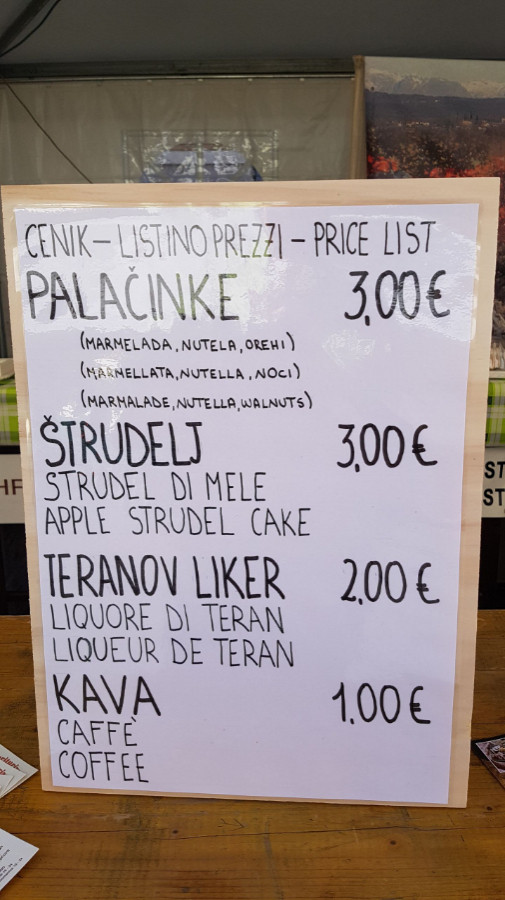 CENIK - LISTINO PREZZI - PRICE LIST
PALAČINKE 3,00 €
(MARMELADA, NUTELA, OREHI)
(MARMELLATA, NUTELLA, NOCI)
(MARMALADE, NUTELLA, WALNUTS)
ŠTRUDELJ 3,00 €
STRUDEL DI MELE
APPLE STRUDEL CAKE
TERANOV LIKER 2,00 €
LIQUORE DI TERAN
LIQUEUR DE TERAN
KAVA 1,00 €
CAFFÈ
COFFEE
HF
ST
ST